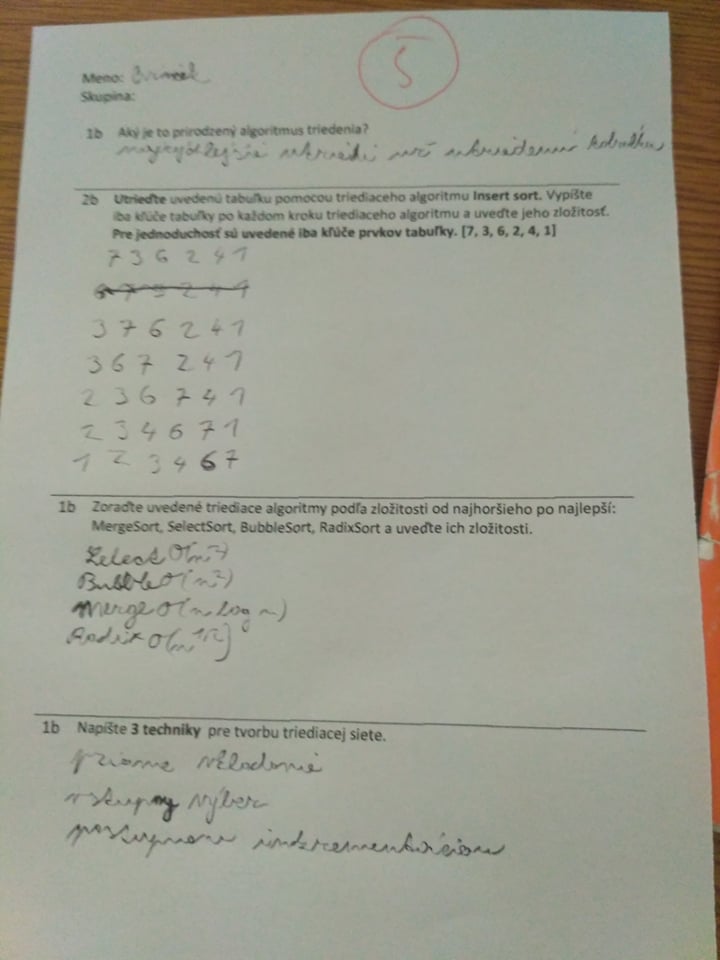 5
Meno:
Skupina:
1b Aký je to prirodzený algoritmus triedenia?
najrýchlejšie utriedi už utriedenú tabuľku
2b Utrieďte uvedenú tabuľku pomocou triediaceho algoritmu Insert sort. Vypíšte
iba kľúče tabuľky po každom kroku triediaceho algoritmu a uveďte jeho zložitosť.
Pre jednoduchosť sú uvedené iba kľúče prvkov tabuľky. [7, 3, 6, 2, 4, 1]
7 3 6 2 4 1
3 7 6 2 4 1
3 6 7 2 4 1
2 3 6 7 4 1
2 3 4 6 7 1
1 2 3 4 6 7
1b Zoraďte uvedené triediace algoritmy podľa zložitosti od najhoršieho po najlepší:
MergeSort, SelectSort, BubbleSort, RadixSort a uveďte ich zložitosti.
Select O(n²)
Bubble O(n²)
Merge O(n log n)
Radix
1b Napíšte 3 techniky pre tvorbu triediacej siete.
priame vkladanie
výber